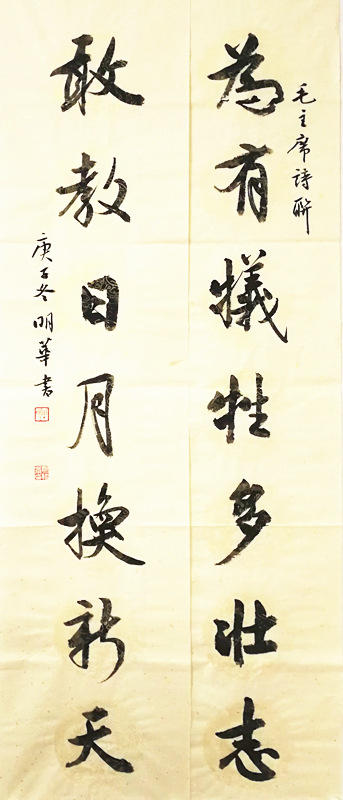 毛主席詩聯
為有犧牲多壯志
敢教日月換新天
庚子冬明華書